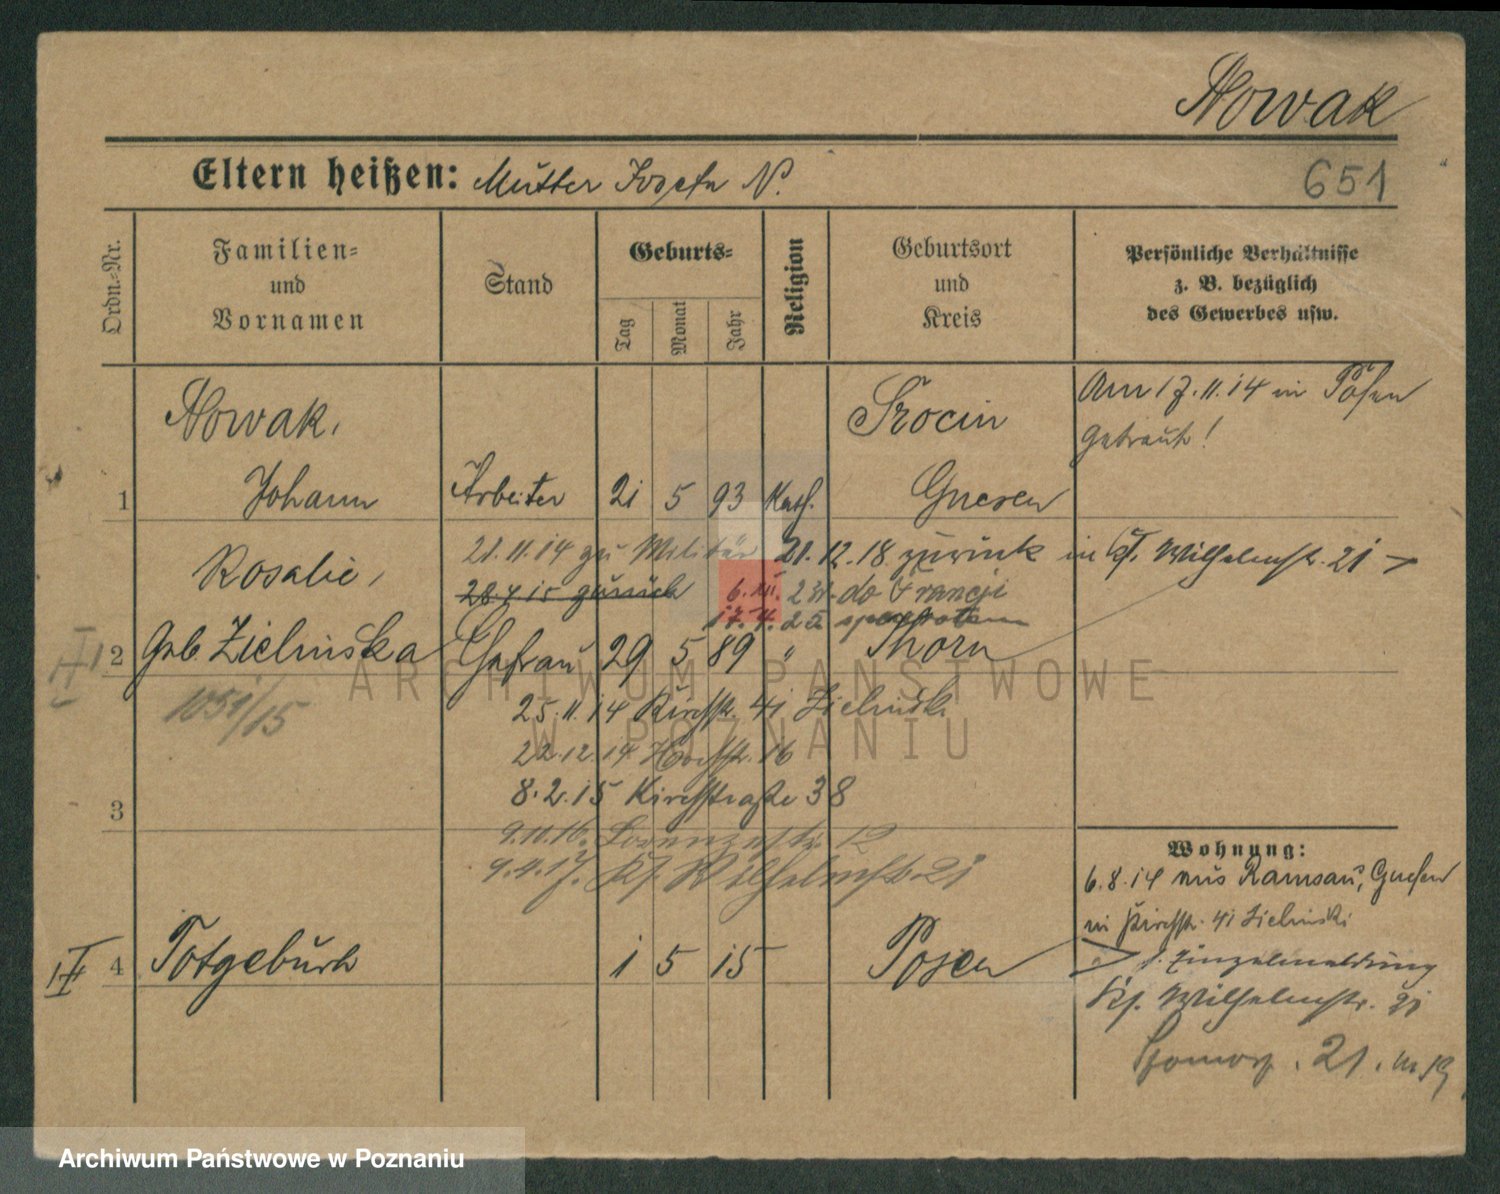 Nowak
Eltern heißen: Mutter Josefa N.
651
Ordn.-Nr.
Familien-
und
Vornamen
Stand
Geburts-
Tag
Monat
Jahr
Religion
Geburtsort
und
Kreis
Persönliche Verhältnisse
z. B. bezüglich
des Gewerbes usw.
Nowak,
Srocin
Am 17.11.14 in Posen
getraut!
1 Johann Arbeiter 21 5 93 Kath. Gnesen
21.11.14 zu Militär 21.12.18 zurück in Wilhelmstr. 21
Rosalie,
28 4 15 zurück 6.XII. do Francji
2 Geb Zielinska Ehefrau 29 5 89 " Thorn
1051/15
25.11.14 Kirchstr. 41 Zielinski
22.12.14 Hochstr. 16
3
8.2.15 Kirchstraße 38
9.10.16. Lorenzstr. 12
9.4.17. Wilhelmstr. 21
Wohnung:
6.8.14 aus Ramsau, Gnesen
in Kirchstr. 41 Zielinski
4 Totgeburt 1 5 15 Posen
s. Einzelmeldung
Wilhelmstr. 21
21.
ARCHIWUM PAŃSTWOWE
W POZNANIU
Archiwum Państwowe w Poznaniu